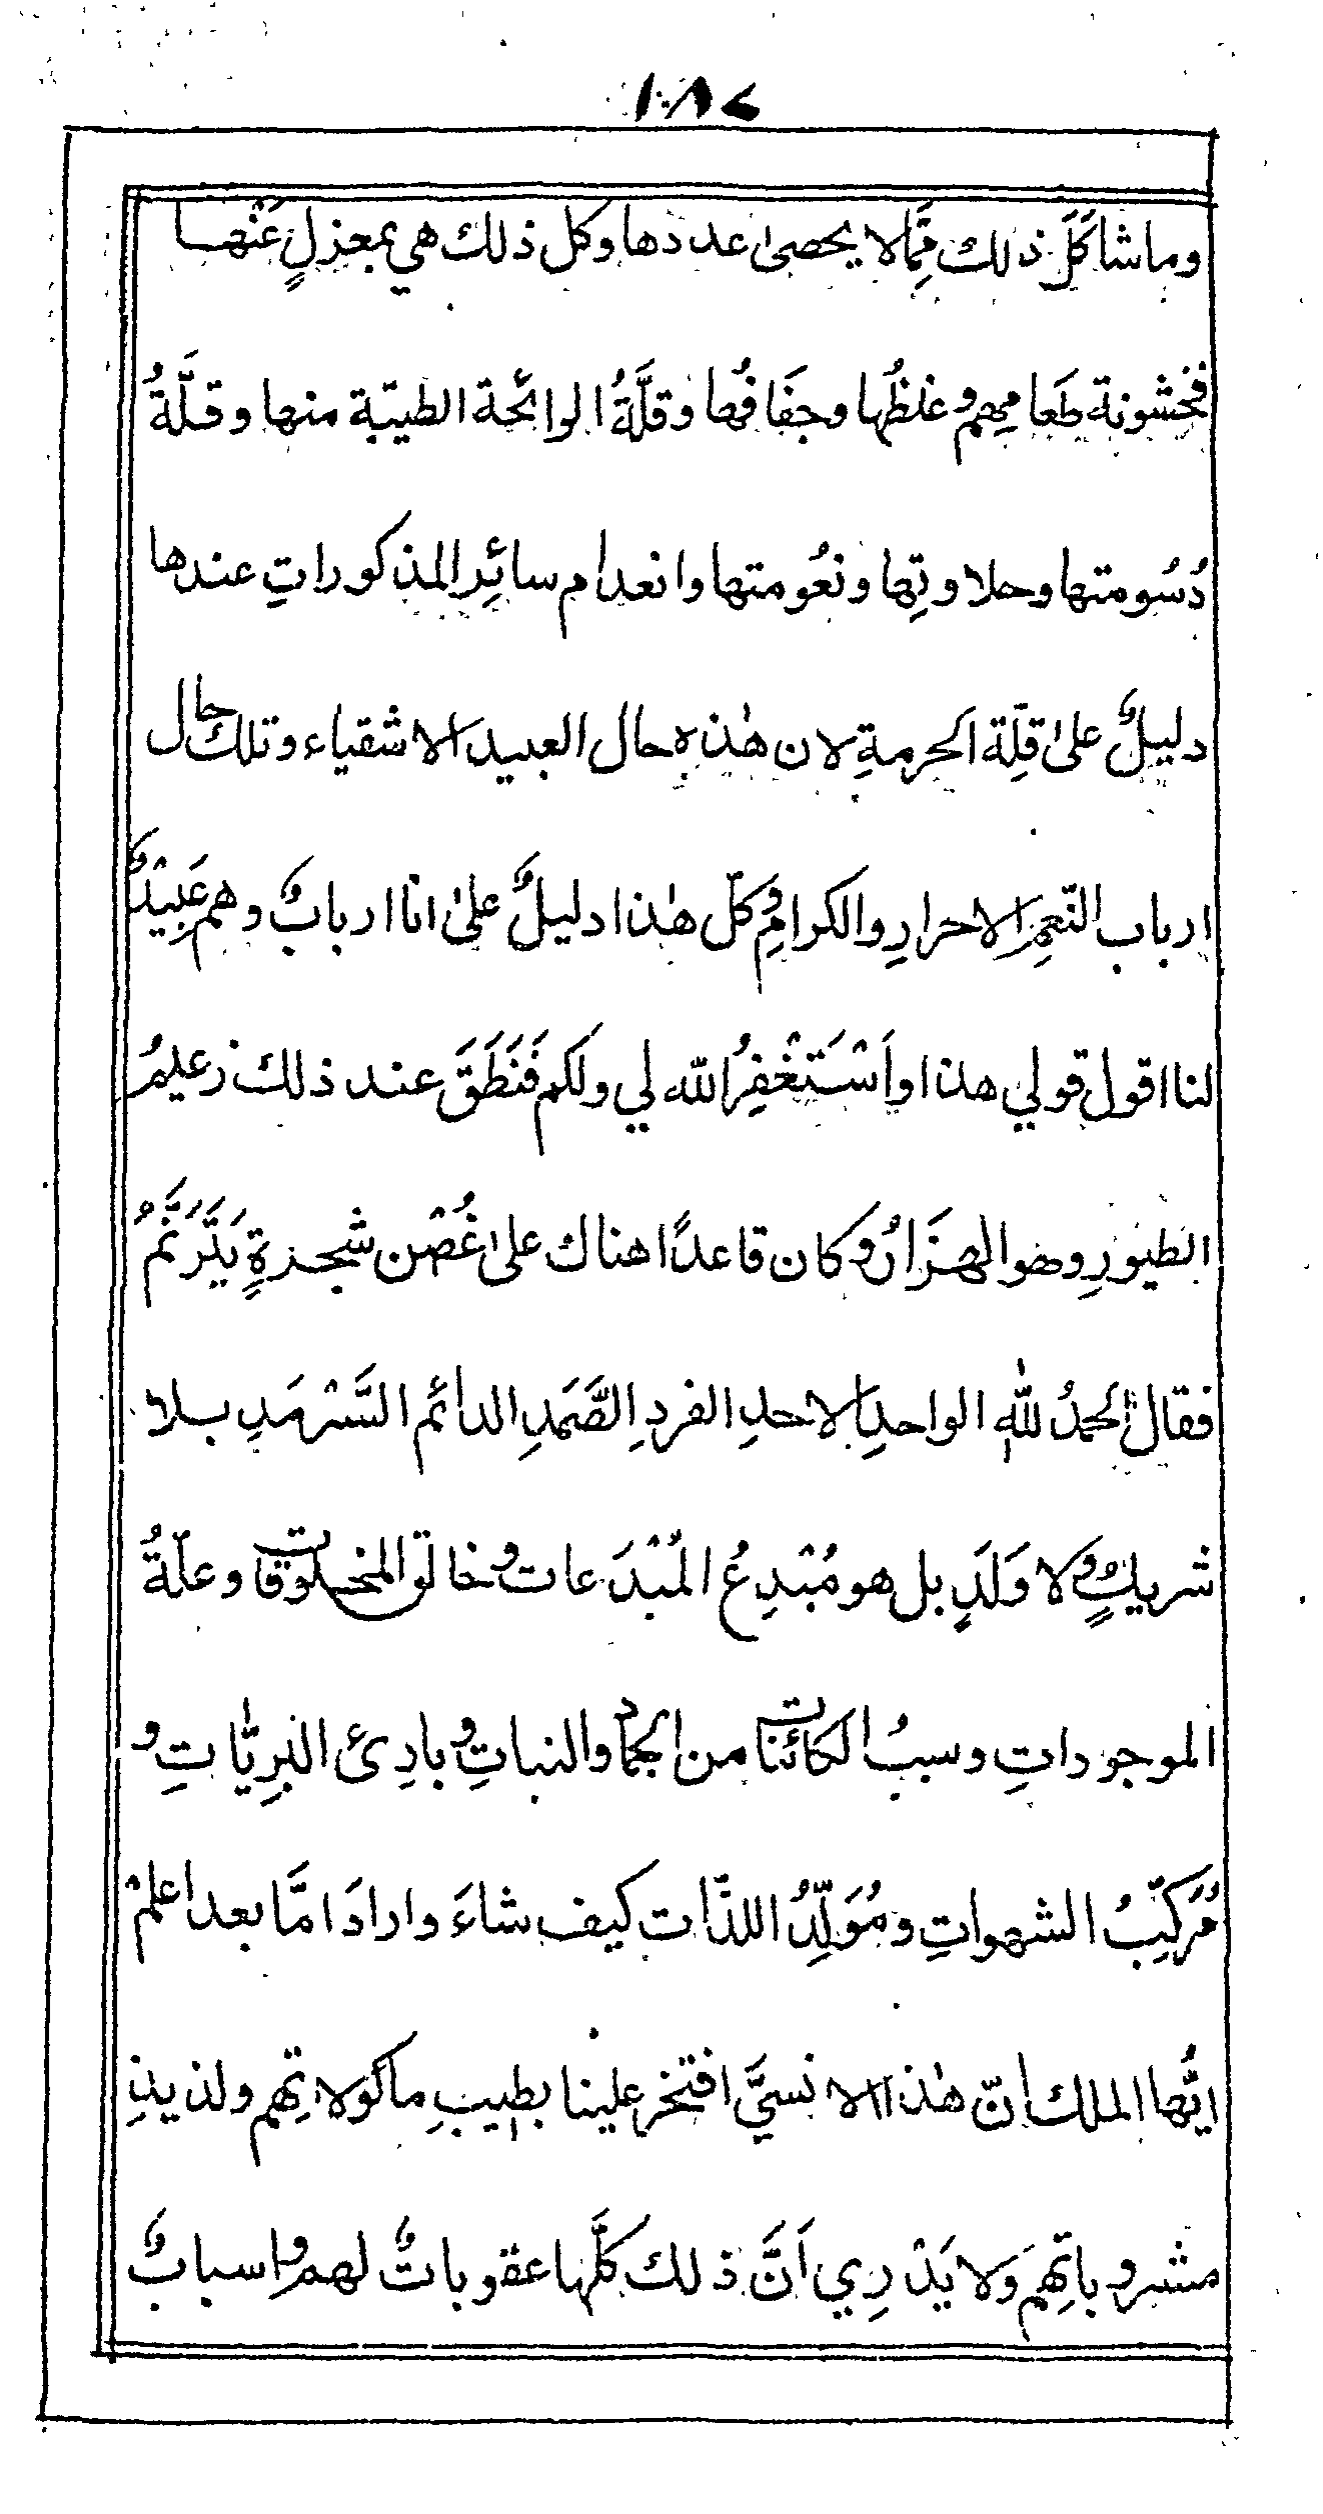 ١٠٨٢
وما شاكَلَ ذلك مِمّا لا يحصىٰ عددها وكل ذلك هي بمعزلٍ عَنْها
فخشونة طَعامِهم وغلظُها وجفَافُها وقلَّةُ الرائحة الطيّبة منها وقلّةُ
دُسُومتها وحلاوتِها ونعُومتها وانعدام سائِر المذكوراتِ عندها
دليلٌ علىٰ قلِّة الحرمةِ لان هٰذه حال العبيد الاشقياء وتلك حال
ارباب النّعمِ الاحرارِ والكرامِ وكلّ هٰذا دليلٌ علىٰ انا اربابٌ وهم عَبِيْدٌ
لنا اقول قولي هذا واَسْتَغْفِرُ الله لي ولكم فَنَطَقَ عند ذلك زعيمُ
الطيورِ وهو الهزَارُ وكان قاعدًا هناك علىٰ غُصْن شجرةٍ يَتَرَنَّمُ
فقال الحمدُ للهِ الواحدِ الاحدِ الفردِ الصَّمَدِ الدائَم السَّرْمَدِ بلا
شريكٍ ولا وَلَدٍ بل هو مُبْدِعُ المُبْدَعات وخالق المخلوقات وعلّةُ
الموجوداتِ وسببُ الكائنات من الجماد والنباتِ وبادِئ البَرِيّاتِ و
مُرَكِّبُ الشهواتِ ومُوَلِّدُ اللذّات كيف شاءَ وارادَ امَّا بعد اعلمْ
ايُّها الملك انّ هٰذا الانسيَّ افتخر علينا بطيبِ ماكولاتِهم ولذيذِ
مشروباتِهِم وَلا يَدْرِي اَنَّ ذلك كلَّها عقوباتٌ لهم واسبابٌ